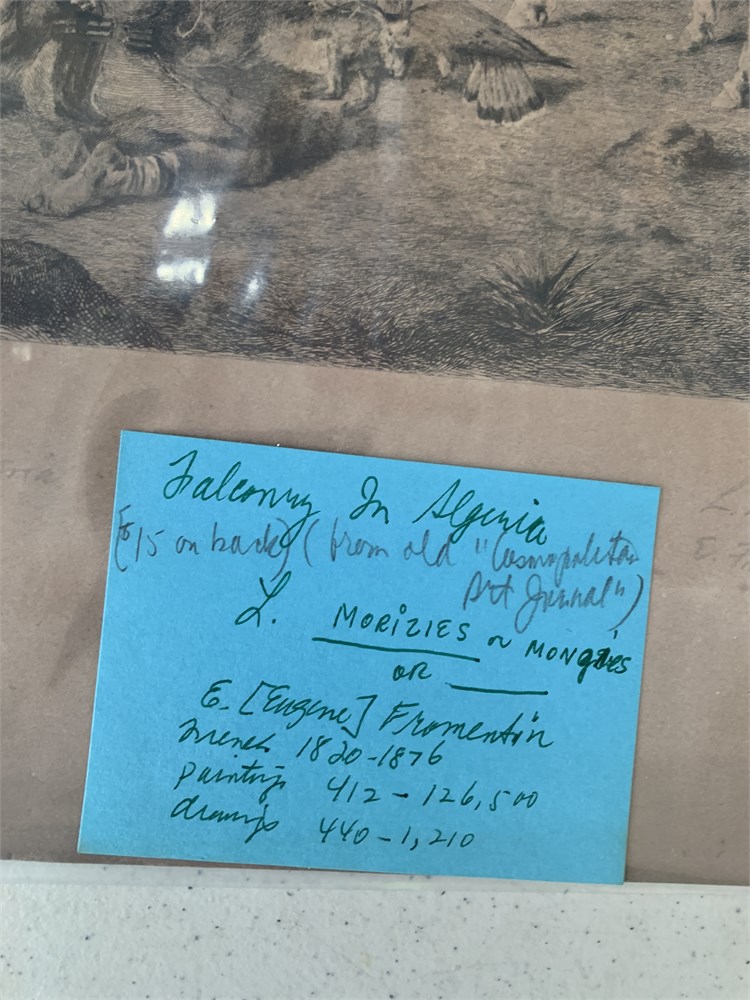 Falconry In Algeria
($15 on back) (from old "Cosmopolitan
Art Journal")
L. MORIZIES or MONGIES
OR
E. [Eugene] Fromentin
French 1820-1876
paintings 412 - 126,500
drawings 440 - 1,210